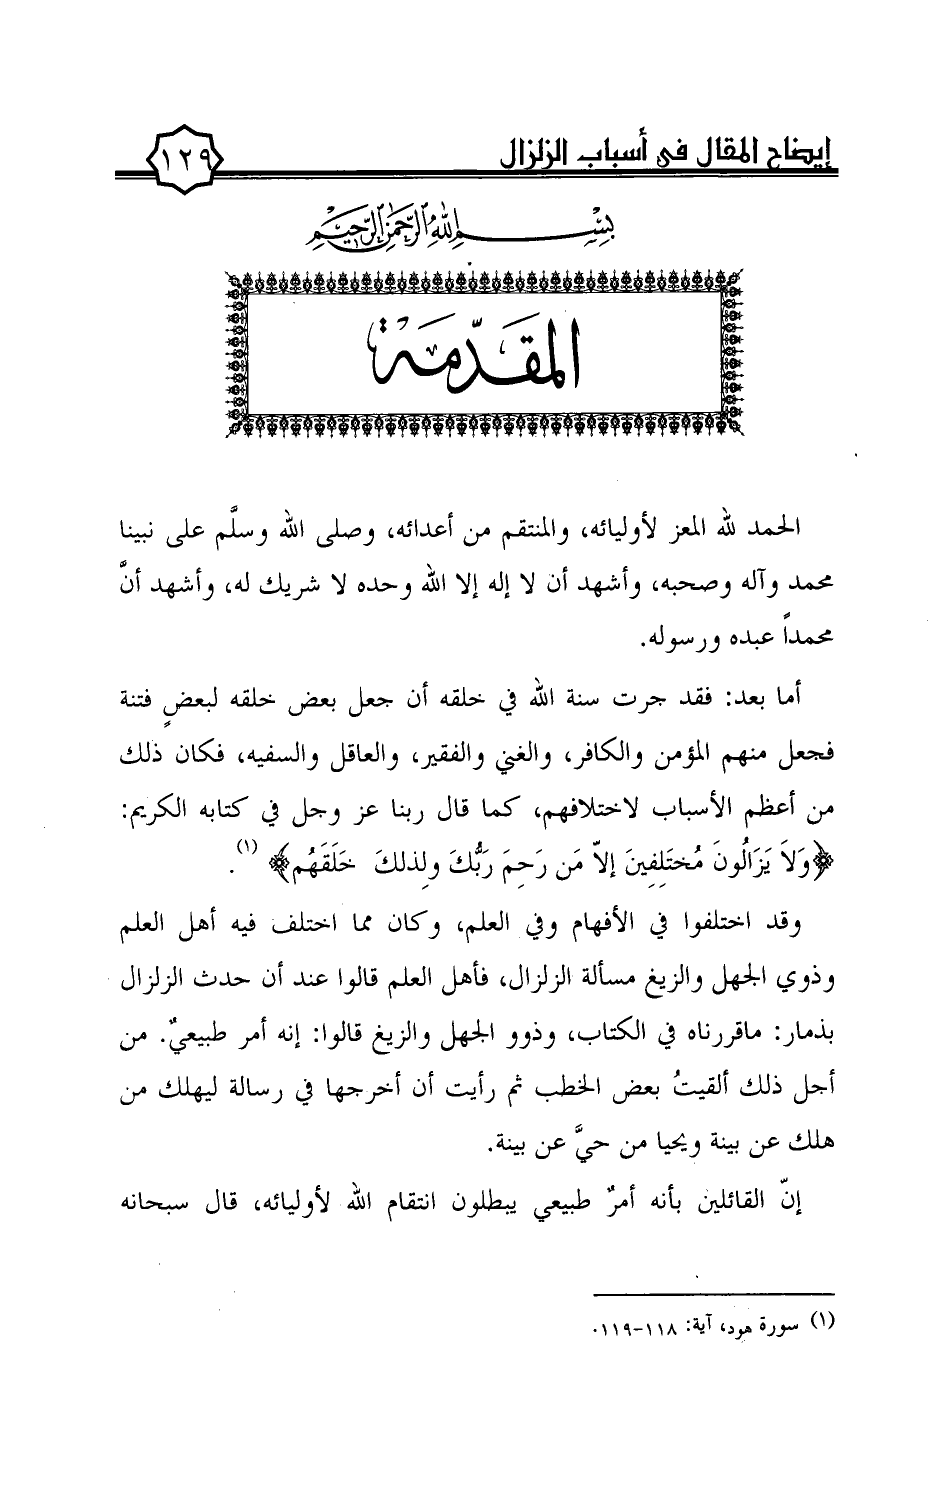 إيضاح المقال في أسباب الزلزال
١٢٩
بسم الله الرحمن الرحيم
المقدّمة
الحمد لله المعز لأوليائه، والمنتقم من أعدائه، وصلى الله وسلَّم على نبينا
محمد وآله وصحبه، وأشهد أن لا إله إلا الله وحده لا شريك له، وأشهد أنَّ
محمداً عبده ورسوله.
أما بعد: فقد جرت سنة الله في خلقه أن جعل بعض خلقه لبعضٍ فتنة
فجعل منهم المؤمن والكافر، والغني والفقير، والعاقل والسفيه، فكان ذلك
من أعظم الأسباب لاختلافهم، كما قال ربنا عز وجل في كتابه الكريم:
﴿وَلاَ يَزَالُونَ مُختَلِفِينَ إلاّ مَن رَحِمَ رَبُّكَ ولِذلكَ خَلَقَهُم﴾ (١).
وقد اختلفوا في الأفهام وفي العلم، وكان مما اختلف فيه أهل العلم
وذوي الجهل والزيغ مسألة الزلزال، فأهل العلم قالوا عند أن حدث الزلزال
بذمار: ماقررناه في الكتاب، وذوو الجهل والزيغ قالوا: إنه أمر طبيعيٌ. من
أجل ذلك ألقيتُ بعض الخطب ثم رأيت أن أخرجها في رسالة ليهلك من
هلك عن بينة ويحيا من حيَّ عن بينة.
إنّ القائلين بأنه أمرٌ طبيعي يبطلون انتقام الله لأوليائه، قال سبحانه
(١) سورة هود، آية: ١١٨-١١٩.